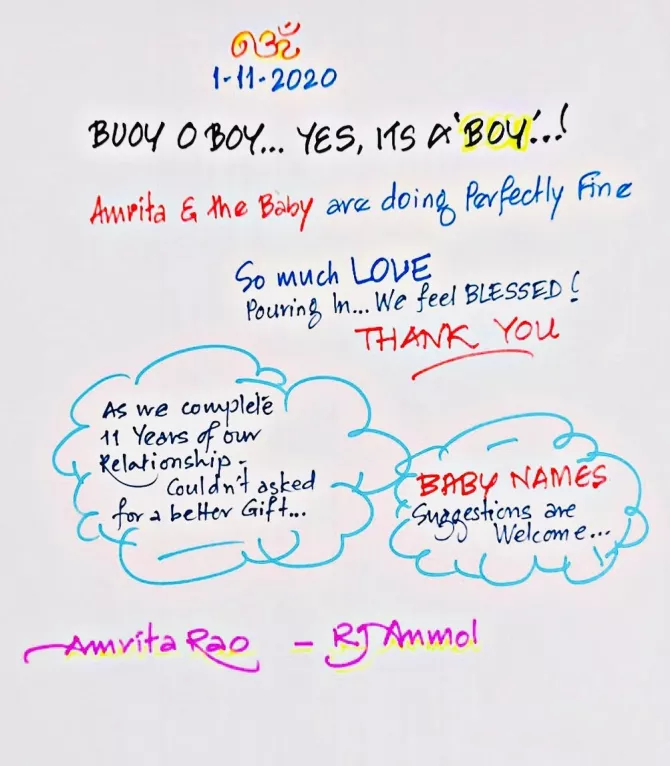 ॐ
1-11-2020
BUOY O BOY... YES, ITS A 'BOY'..!
Amrita & the Baby are doing Perfectly Fine
So much LOVE
Pouring In... We feel BLESSED!
THANK YOU
As we complete
11 Years of our
Relationship -
Couldn't asked
for a better Gift...
BABY NAMES
Suggestions are
Welcome...
Amrita Rao - RJ Anmol